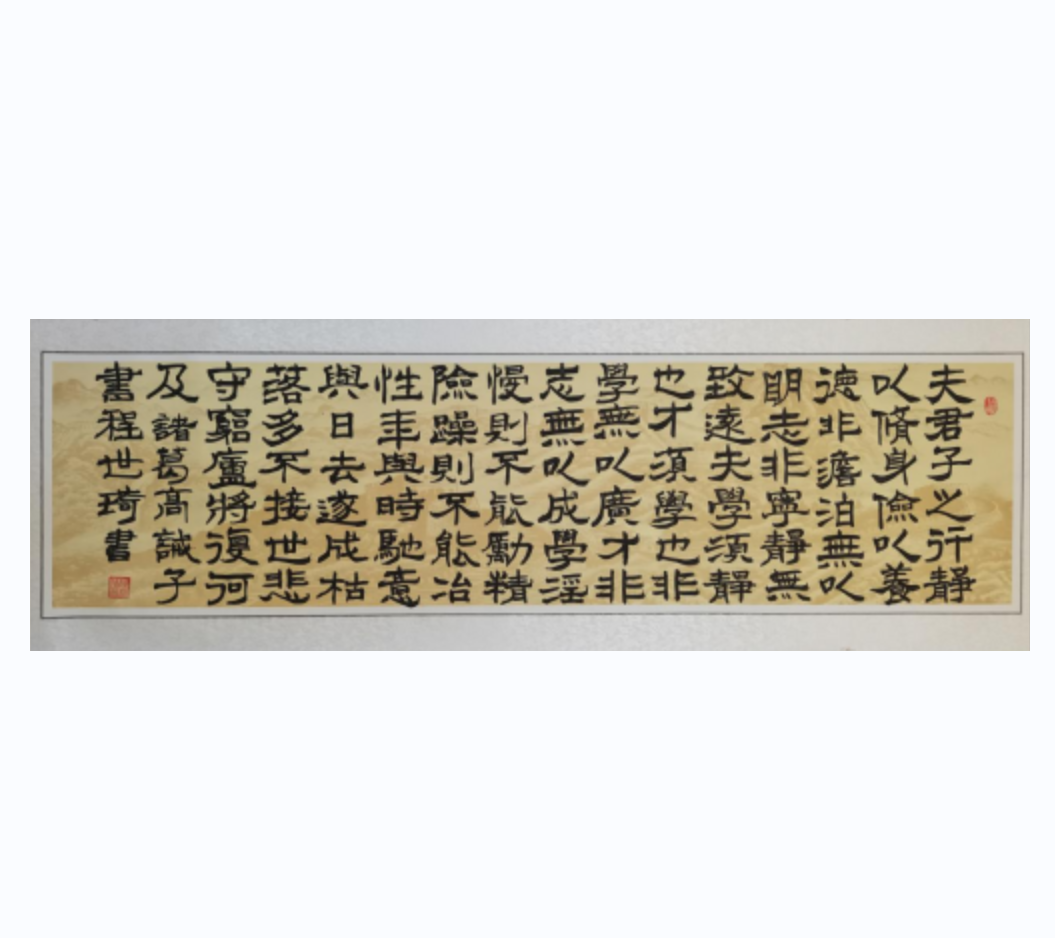 夫君子之行靜
以脩身儉以養
德非澹泊無以
明志非寧靜無
致遠夫學須靜
也才須學也非
學無以廣才非
志無以成學淫
慢則不能勵精
險躁則不能冶
性年與時馳意
與日去遂成枯
落多不接世悲
守窮廬將復何
及諸葛高誡子
書程世琦書